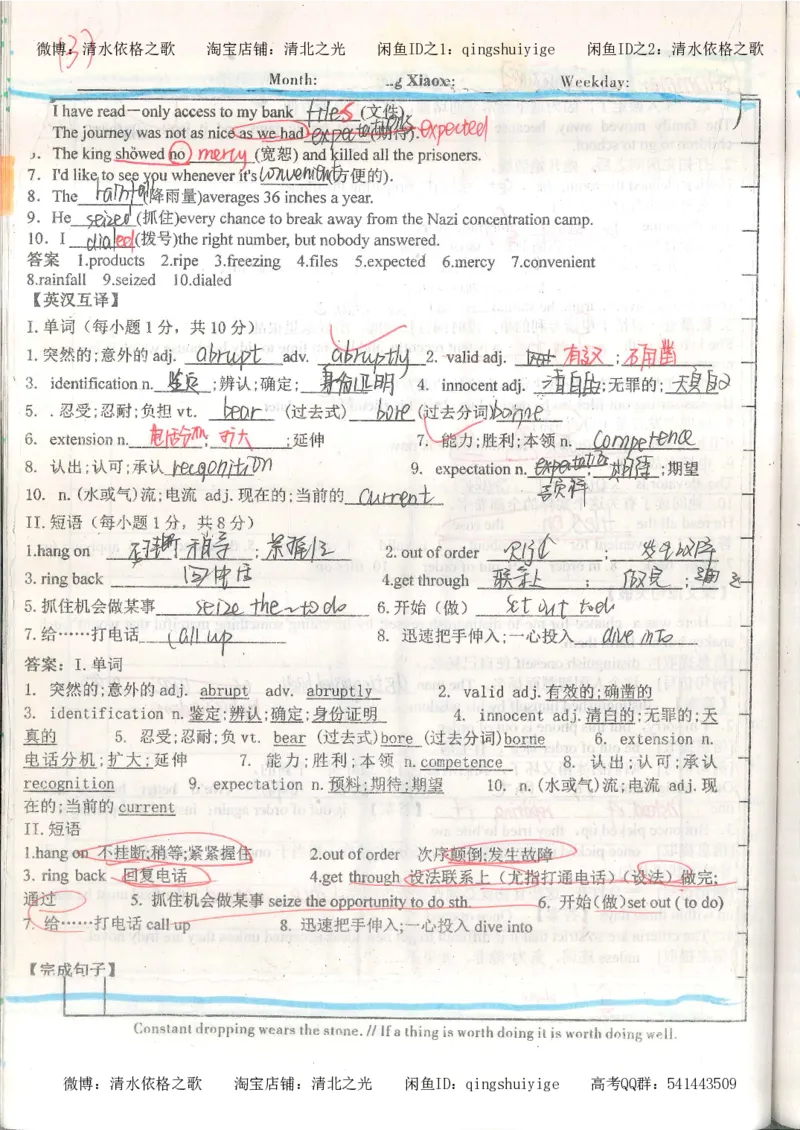 微博：清水依格之歌 淘宝店铺：清北之光 闲鱼ID之1：qingshuiyige 闲鱼ID之2：清水依格之歌
(3)
Month: g Xiaox Weekday:
I have read—only access to my bank files (文件)
The journey was not as nice as we had expected (期待).
The king showed no mercy (宽恕) and killed all the prisoners.
7. I'd like to see you whenever it's convenient(方便的).
8. The rainfall(降雨量)averages 36 inches a year.
9. He seized (抓住)every chance to break away from the Nazi concentration camp.
10. I dialed(拨号)the right number, but nobody answered.
答案 1.products 2.ripe 3.freezing 4.files 5.expected 6.mercy 7.convenient
8.rainfall 9.seized 10.dialed
【英汉互译】
I. 单词（每小题1分，共10分）
1. 突然的;意外的 adj. abrupt adv. abruptly 2. valid adj. 有效 ; 确凿
3. identification n. 鉴定 ;辨认;确定; 身份证明 4. innocent adj. 清白的;无罪的;
5. . 忍受;忍耐;负担 vt. bear (过去式) bore (过去分词)borne
6. extension n. 电话分机; 扩大 ;延伸 7. 能力;胜利;本领 n. competence
8. 认出;认可;承认 recognition 9. expectation n. 期待 ;期望
10. n.(水或气)流;电流 adj.现在的;当前的 current
II. 短语（每小题1分，共8分）
1.hang on 不挂断 稍等 ; 紧握住 2. out of order ;
3. ring back 4.get through 联系上 ; 做完 ;
5. 抓住机会做某事 seize the~to do 6.开始（做） set out to do
7. 给……打电话 call up 8. 迅速把手伸入;一心投入 dive into
答案：I.单词
1. 突然的;意外的 adj. abrupt adv. abruptly 2. valid adj. 有效的;确凿的
3. identification n. 鉴定;辨认;确定;身份证明 4. innocent adj.清白的;无罪的;天
真的 5. 忍受;忍耐;负 vt. bear (过去式)bore (过去分词)borne 6. extension n.
电话分机;扩大;延伸 7. 能力;胜利;本领 n. competence 8. 认出;认可;承认
recognition 9. expectation n. 预料;期待;期望 10. n.(水或气)流;电流 adj.现
在的;当前的 current
II. 短语
1.hang on 不挂断;稍等;紧紧握住 2.out of order 次序颠倒;发生故障
3. ring back 回复电话 4.get through 设法联系上（尤指打通电话）（设法）做完;
通过 5. 抓住机会做某事 seize the opportunity to do sth. 6. 开始(做)set out ( to do)
7. 给……打电话 call up 8. 迅速把手伸入;一心投入 dive into
【完成句子】
Constant dropping wears the stone. // If a thing is worth doing it is worth doing well.
微博：清水依格之歌 淘宝店铺：清北之光 闲鱼ID：qingshuiyige 高考QQ群：541443509